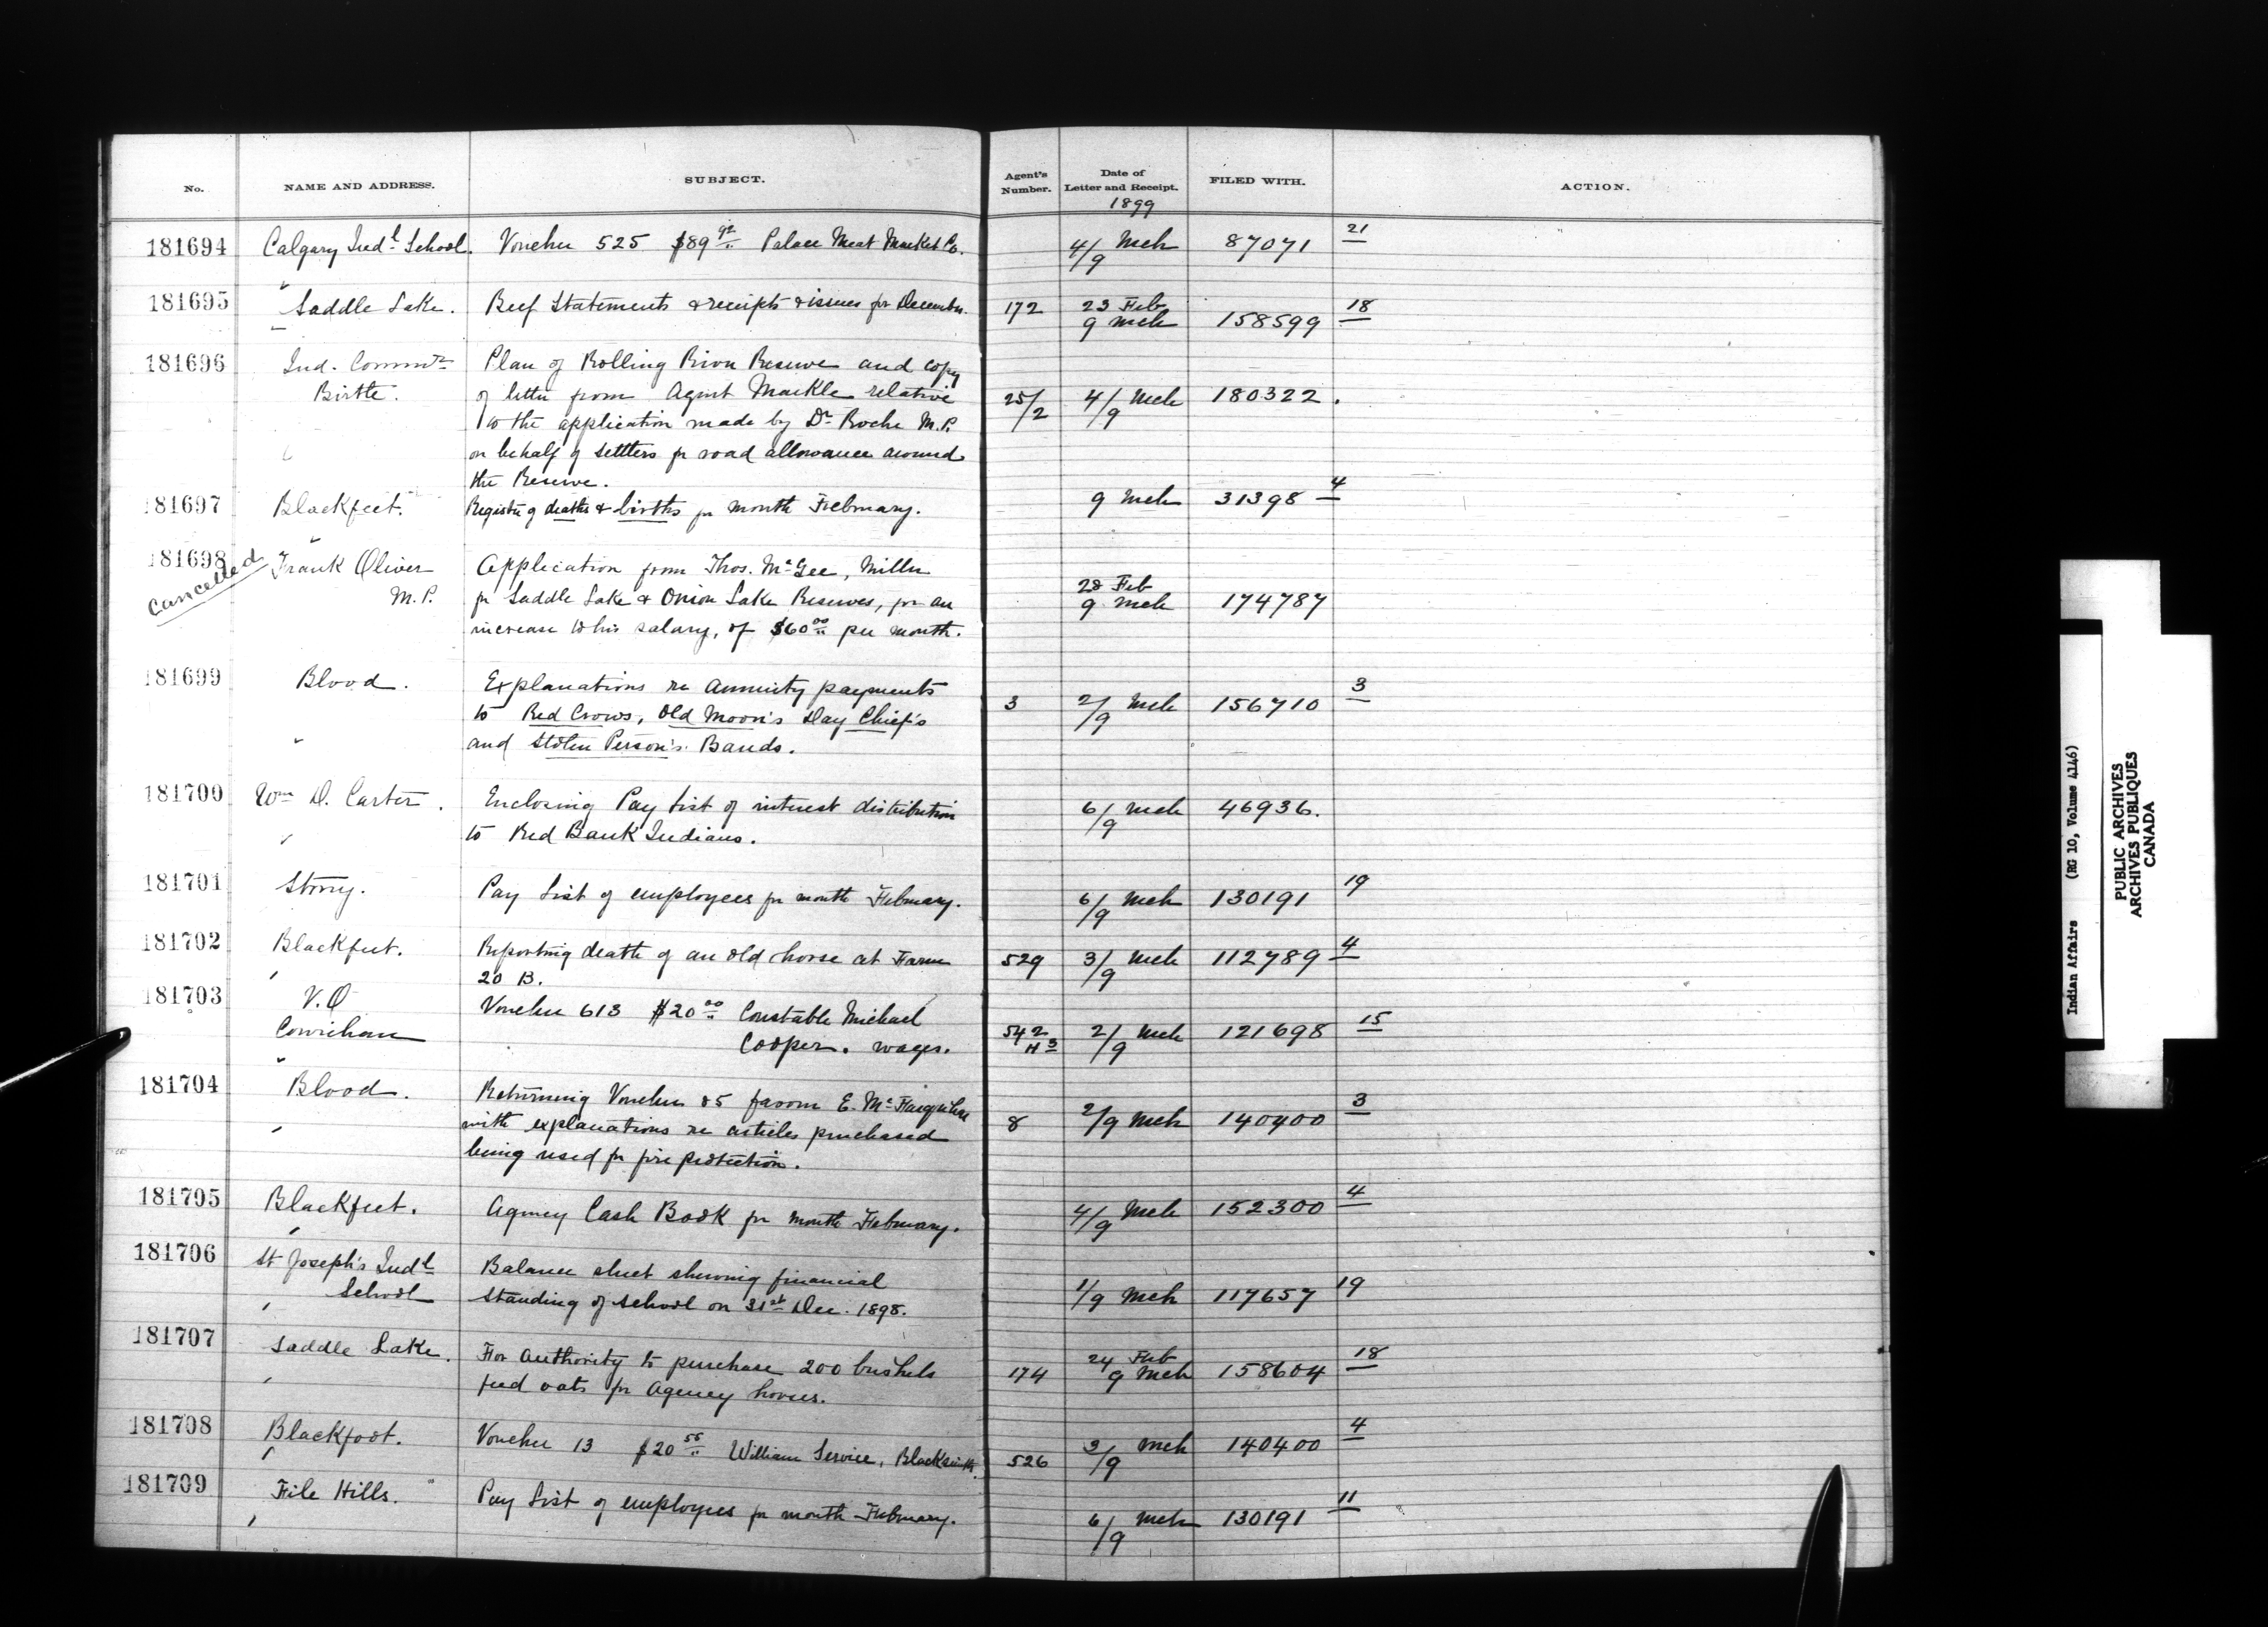 No. NAME AND ADDRESS. SUBJECT. Agent's Number. Date of Letter and Receipt. FILED WITH. ACTION.
1899
181694 Calgary Indl School. Voucher 525 $89 92 Palace Meat Market Co. 4/9 Mch 87071 21
181695 Saddle Lake. Beef Statements & receipts & issues for December. 172 23 Feb 9 Mch 158599 18
181696 Ind. Commr Plan of Rolling River Reserve and copy
Birtle. of letter from Agent Markle relative 25/2 4/9 Mch 180322.
to the application made by Dr Roche M.P.
on behalf of settlers for road allowance around
the Reserve.
181697 Blackfeet. Register of deaths & births for month February. 9 Mch 31398 4
181698 Frank Oliver Application from Thos. McGee, Miller
cancelled
M.P. for Saddle Lake & Onion Lake Reserves, for an 28 Feb 9 Mch 174787
increase to his salary, of $60 00 per month.
181699 Blood. Explanations re Annuity payments
to Red Crows, Old Moon's Day Chief's 3 2/9 Mch 156710 3
and Stolen Person's Bands.
181700 Wm D. Carter. Enclosing Pay List of interest distribution 6/9 Mch 46936.
to Red Bank Indians.
181701 Stony. Pay List of employees for month February. 6/9 Mch 130191 19
181702 Blackfeet. Reporting death of an old horse at Farm 529 3/9 Mch 112789 4
20 B.
181703 V.O Voucher 613 $20 00 Constable Michael
Cowichan Cooper. wages. 542 H3 2/9 Mch 121698 15
181704 Blood. Returning Voucher 85 favour E. McFarquhar
with explanations re articles purchased 8 2/9 Mch 140400 3
being used for fire protection.
181705 Blackfeet. Agency Cash Book for month February. 4/9 Mch 152300 4
181706 St Joseph's Indl Balance sheet showing financial
School standing of school on 31st Dec. 1898. 1/9 Mch 117657 19
181707 Saddle Lake. For authority to purchase 200 bushels 174 24 Feb 9 Mch 158604 18
feed oats for Agency horses.
181708 Blackfoot. Voucher 13 $20 55 William Service, Blacksmith. 526 3/9 Mch 140400 4
181709 File Hills. Pay List of employees for month February. 6/9 Mch 130191 11
Indian Affairs (RG 10, Volume 4146)
PUBLIC ARCHIVES
ARCHIVES PUBLIQUES
CANADA